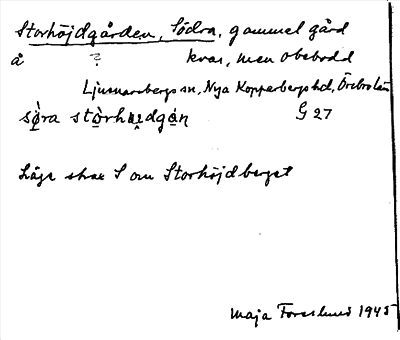 Storhöjdgården, Södra, gammel gård
å ? kvar, men obebodd
Ljusnarsbergs sn, Nya Kopparbergs hd, Örebro län
sø̀ra stòrhøi̯dgɑ́n G 27
Läge strax S om Storhöjdberget
Maja Forslund 1945